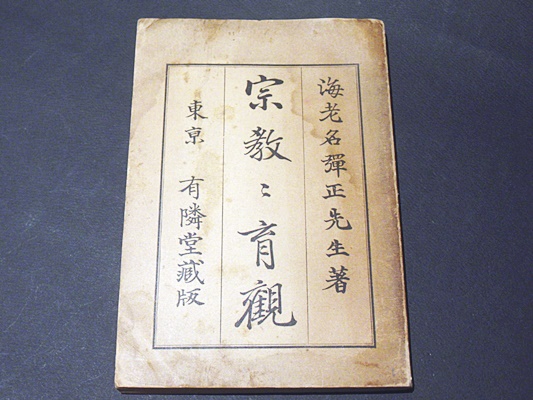 海老名彈正先生著
宗教〻育觀
東京 有隣堂藏版